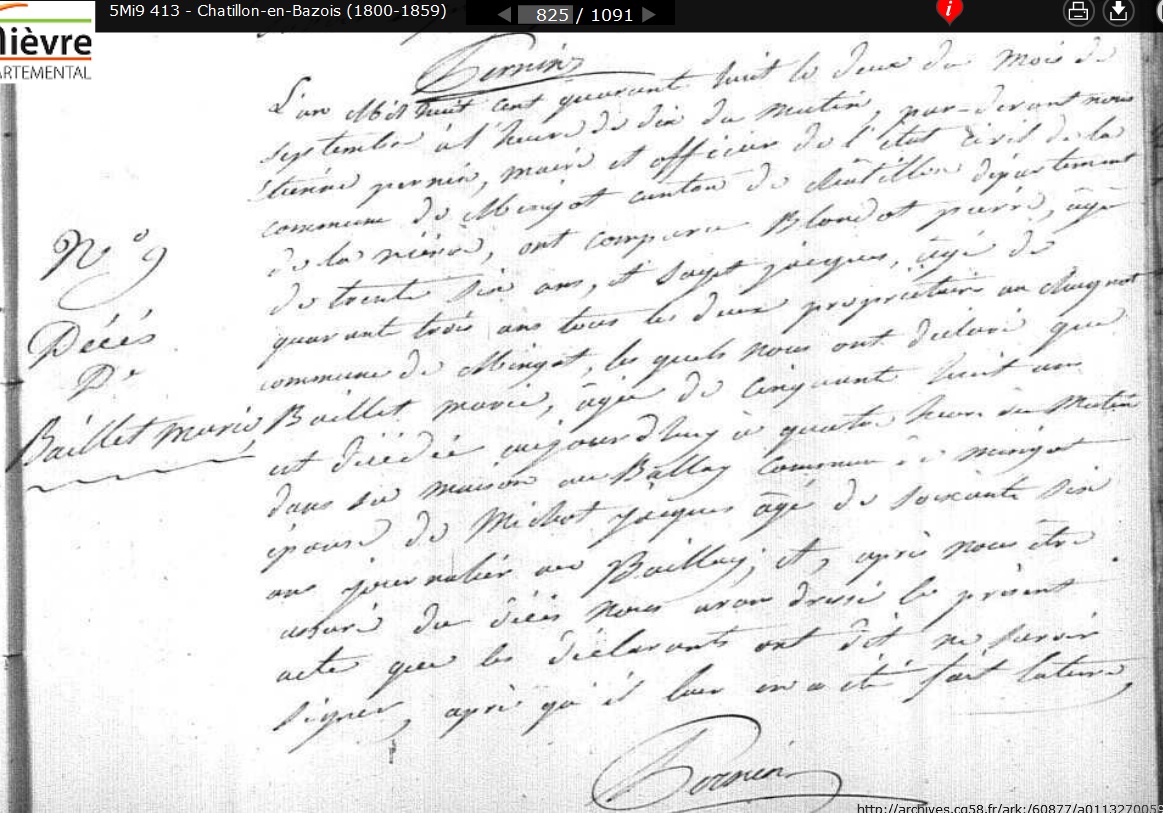 5Mi9 413 - Chatillon-en-Bazois (1800-1859)
825 / 1091
ièvre
ARTEMENTAL
Pernin
L'an Mil huit cent quarante huit le deux du mois de
septembre à l'heure de dix du matin, par-devant nous
étienne pernin, maire et officier de l'état civil de la
commune de Mingot canton de châtillon département
de la nièvre, ont comparu Blondot pierre, âgé
de trente six ans, et jacques, âgé de
quarante trois ans tous les deux propriétaires au
commune de Mingot, les quels nous ont déclaré que
Baillet marie, âgée de cinquante huit ans
est décédée aujourd'huy à quatre heure du Matin
dans sa maison au Baillay commune de mingot
épouse de Michot jacques âgé de soixante six
ans journalier au Baillay; et, après nous être
assuré du décés nous avon dressé le présent
acte que les déclarants ont dit ne savoir
signer, après qu'il leur en a été fait lature,
Pernin
N° 9
Décés
De
Baillet marie,
http://archives.cg58.fr/ark:/60877/a0113270059